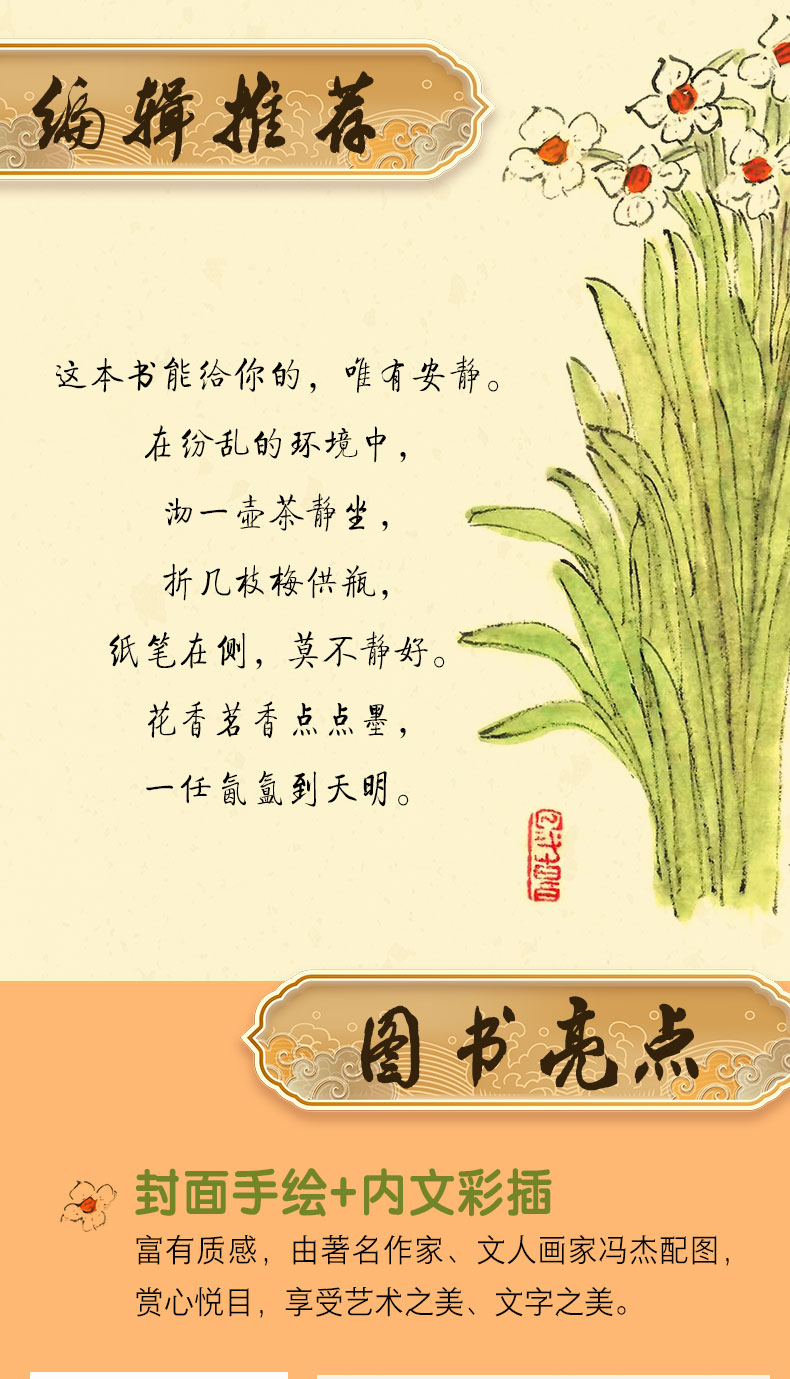 编辑推荐
这本书能给你的，唯有安静。
在纷乱的环境中，
沏一壶茶静坐，
折几枝梅供瓶，
纸笔在侧，莫不静好。
花香茗香点点墨，
一任氤氲到天明。
图书亮点
封面手绘+内文彩插
富有质感，由著名作家、文人画家冯杰配图，
赏心悦目，享受艺术之美、文字之美。